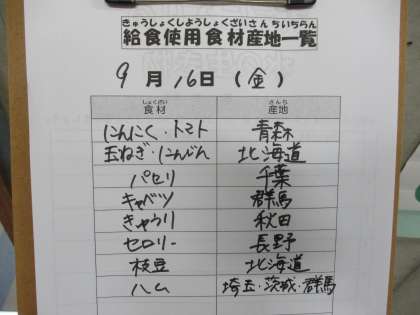 きゅうしょくしようしょくざいさんちいちらん
給食使用食材産地一覧
9月16日(金)
しょくざい さんち
食材 産地
にんにく・トマト 青森
玉ねぎ・にんじん 北海道
パセリ 千葉
キャベツ 群馬
きゅうり 秋田
セロリー 長野
枝豆 北海道
ハム 埼玉・茨城・群馬